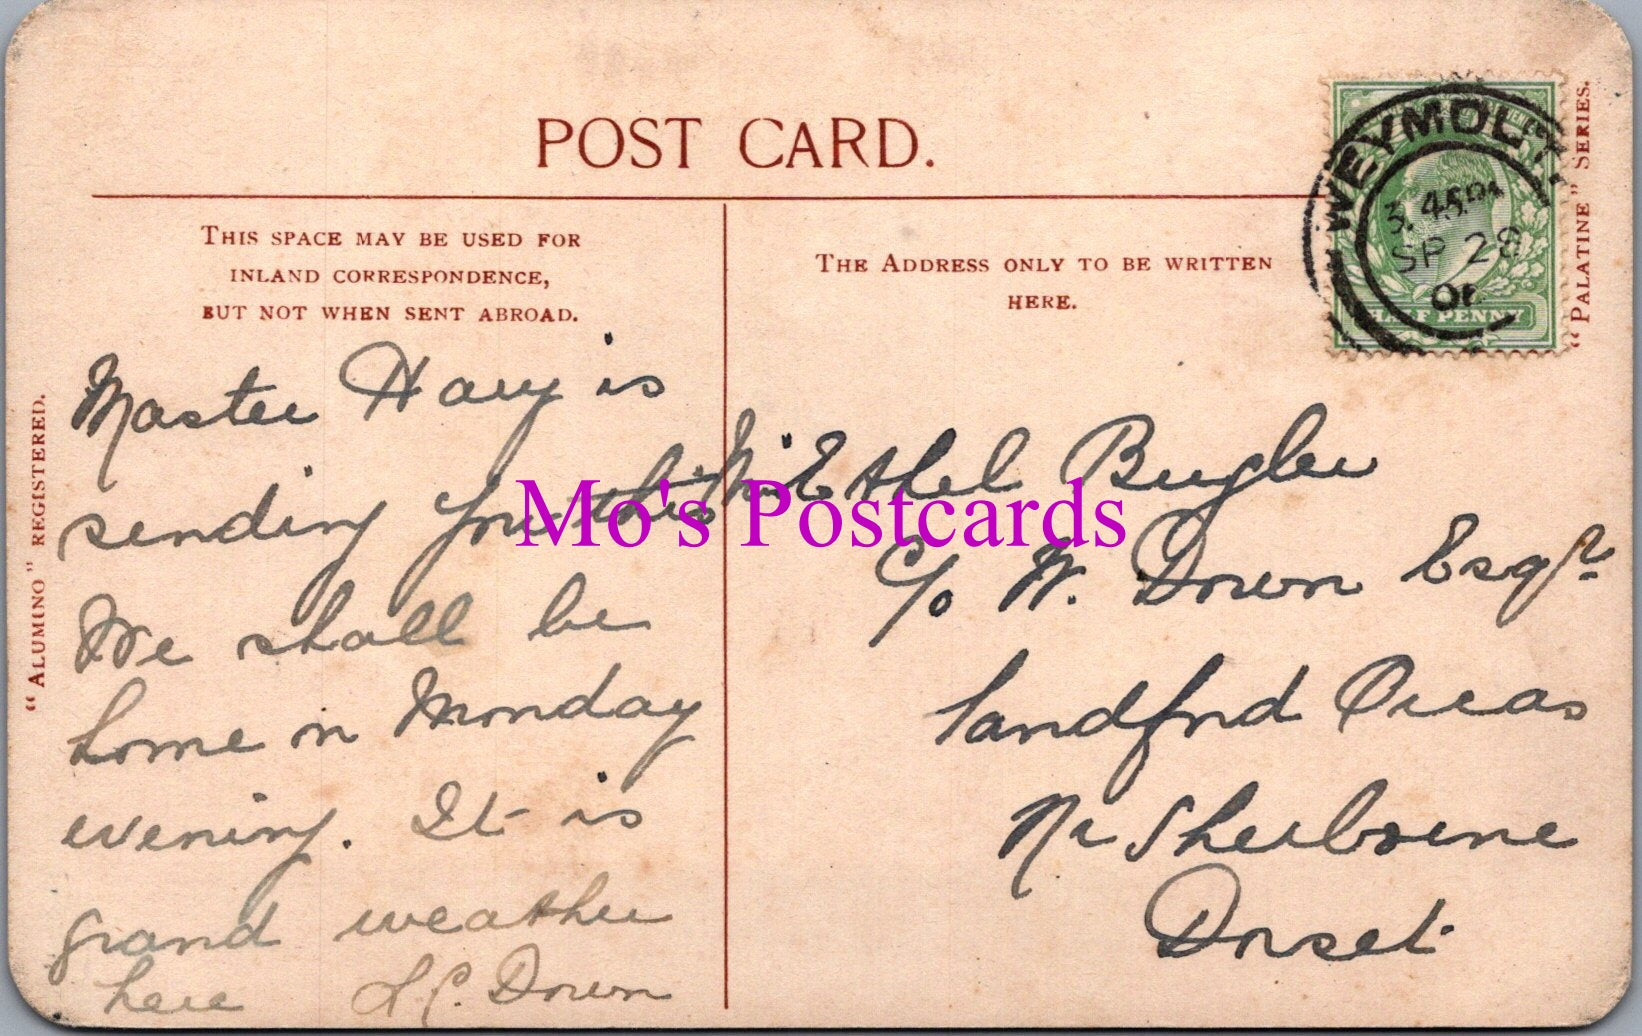 POST CARD.
THIS SPACE MAY BE USED FOR
INLAND CORRESPONDENCE,
BUT NOT WHEN SENT ABROAD.
THE ADDRESS ONLY TO BE WRITTEN
HERE.
"ALUMINO" REGISTERED.
"PALATINE" SERIES.
WEYMOUTH
3.45PM
SP 28
HALF PENNY
Master Harry is
sending you this
We shall be
home on Monday
evening. It is
grand weather
here L. C. Down
Ethel Bugler
C/o W. Down Esqr.
Sandford Orcas
Nr Sherborne
Dorset
Mo's Postcards